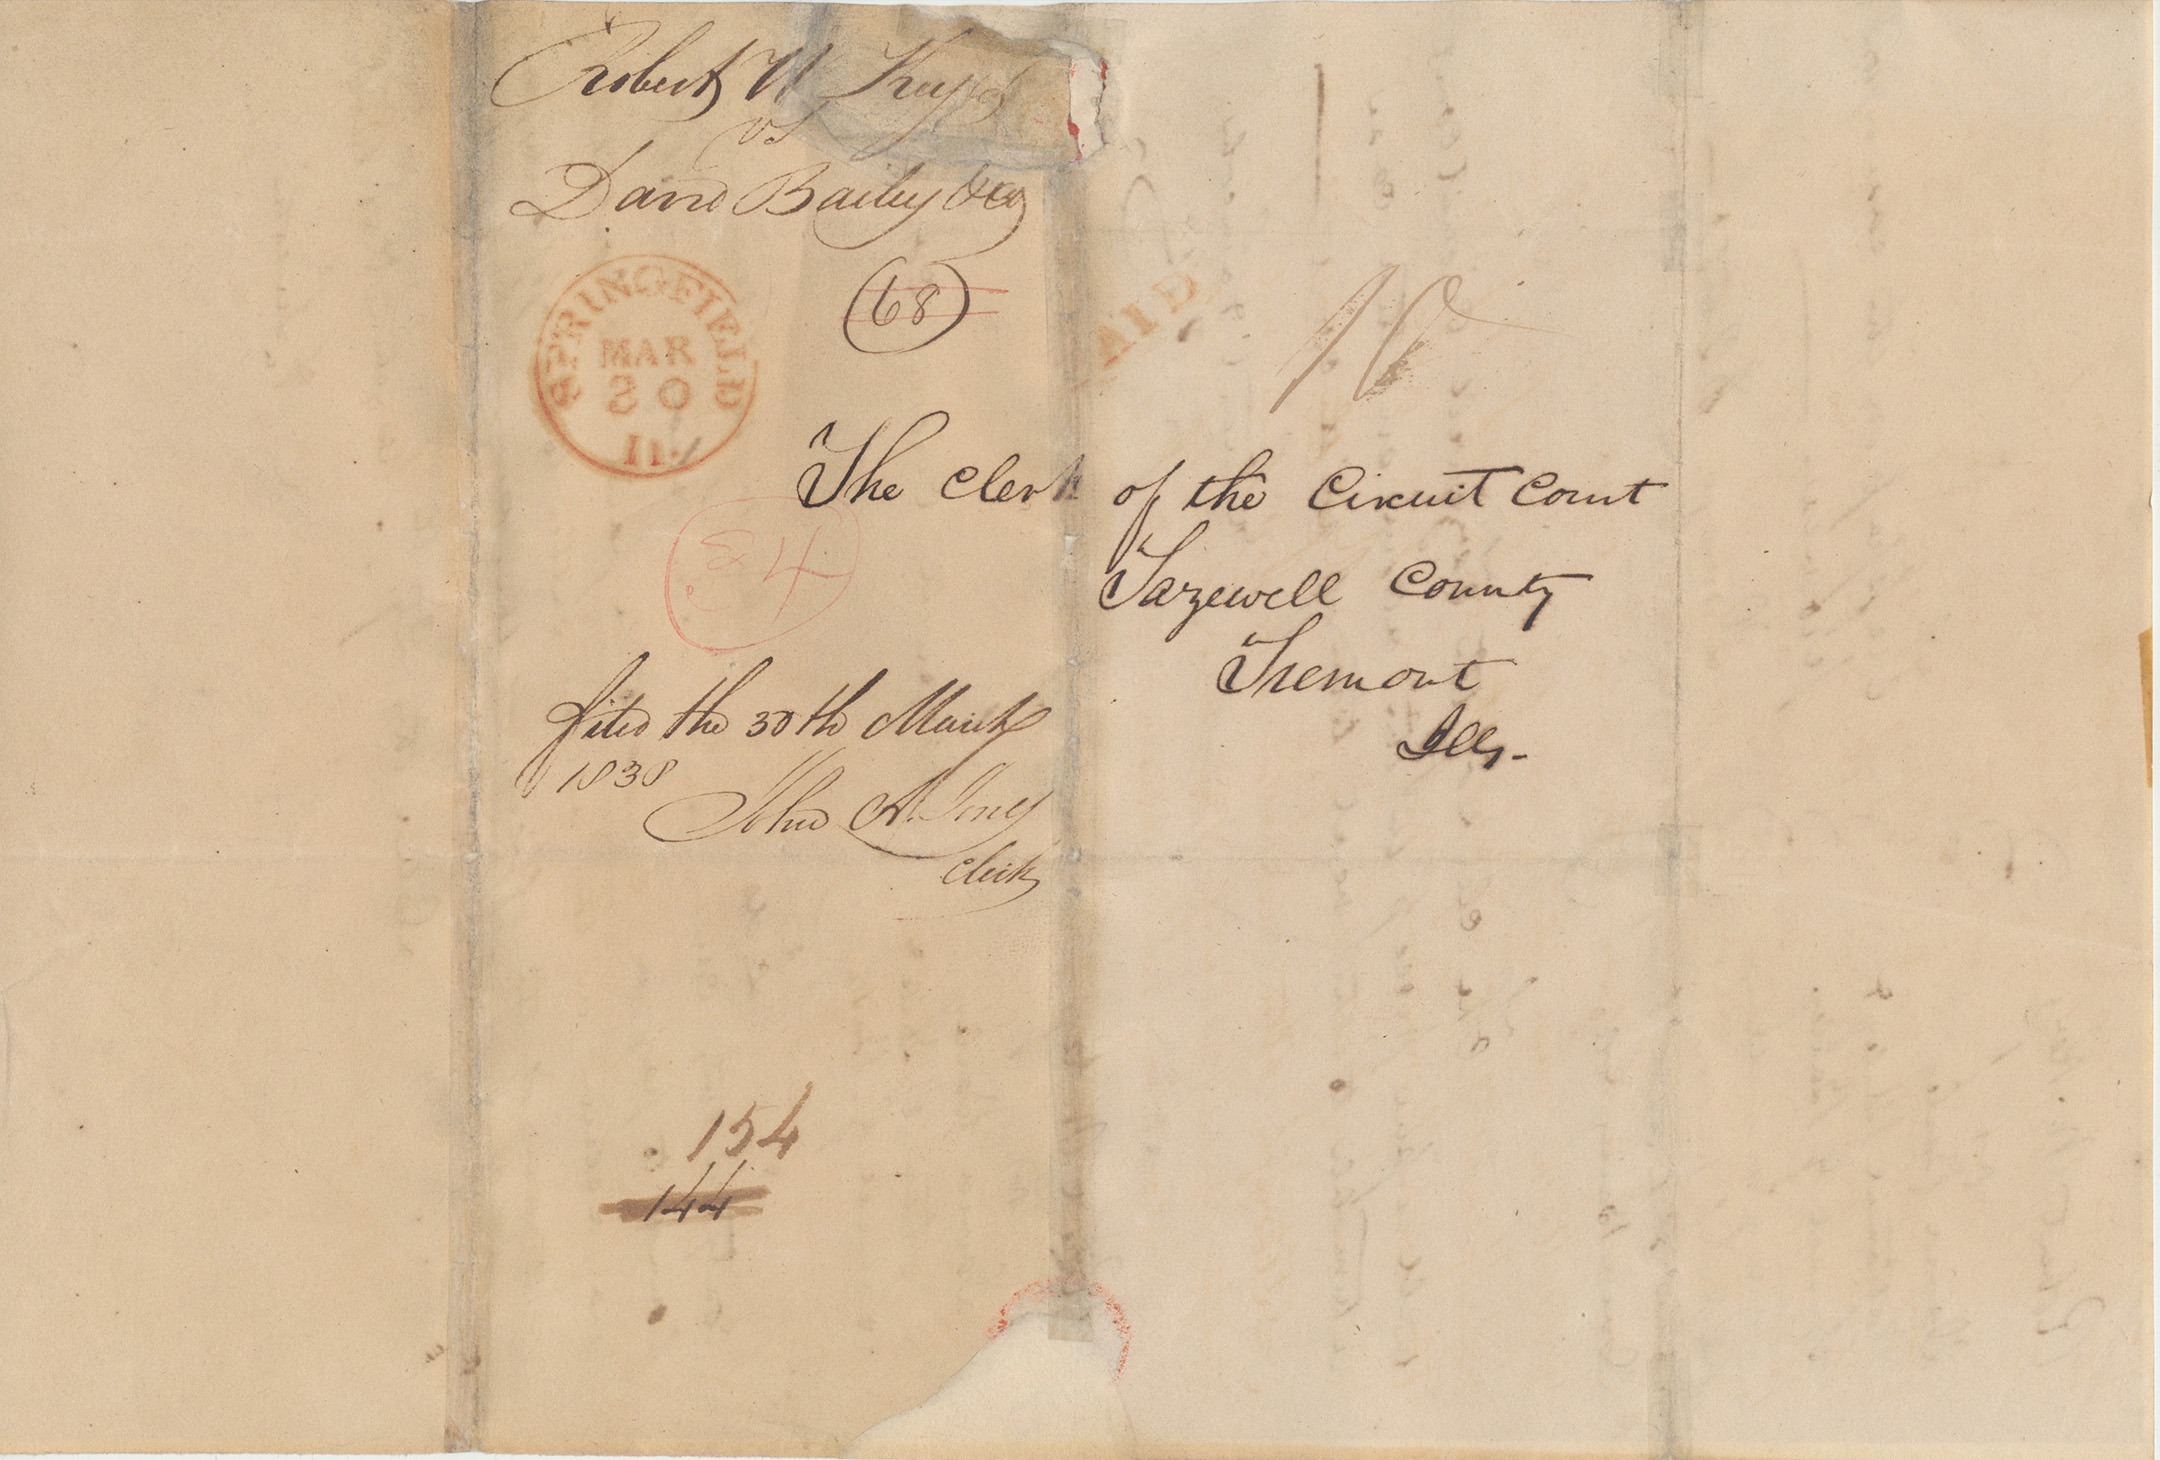 Robert W
vs
David Bailey &co
68
SPRINGFIELD
MAR
30
Il.
AID
10
The Clerk of the Circuit Court
Tazewell County
Tremont
Ills-
34
filed the 30th March
1838
John A. Jones
clerk
154
144